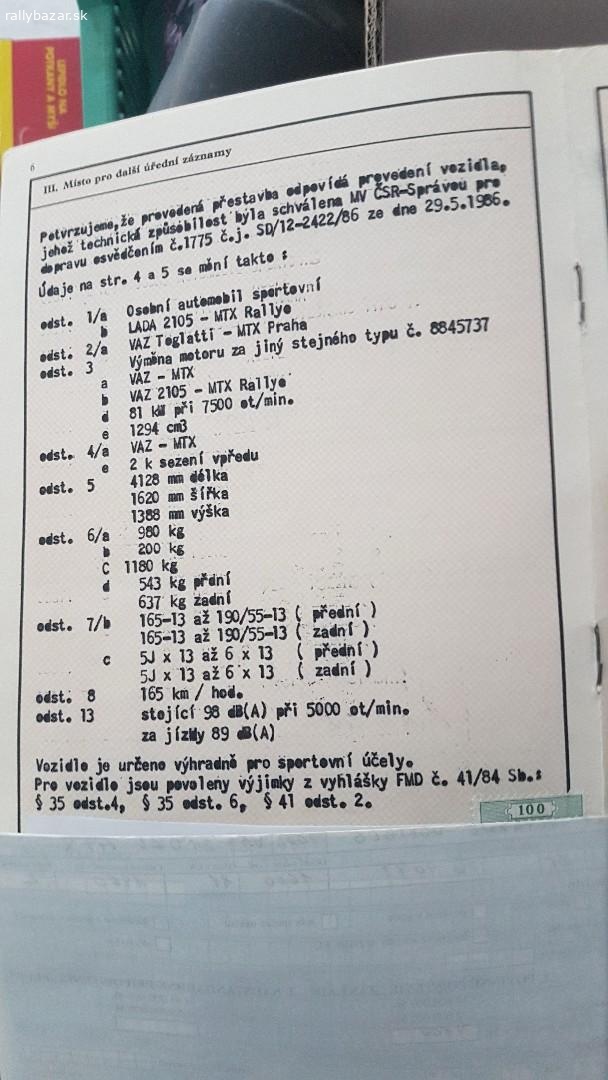 rallybazar.sk
LEPIDLO NA
POTKANY A MYŠI
6
III. Místo pro další úřední záznamy
Potvrzujeme, že provedená přestavba odpovídá provedení vozidla,
jehož technická způsobilost byla schválena MV ČSR-Správou pro
dopravu osvědčením č.1775 č.j. SD/12-2422/86 ze dne 29.5.1986.
Údaje na str. 4 a 5 se mění takto :
odst. 1/a Osobní automobil sportovní
b LADA 2105 - MTX Rallye
odst. 2/a VAZ Togliatti - MTX Praha
odst. 3 Výměna motoru za jiný stejného typu č. 8845737
a VAZ - MTX
b VAZ 2105 - MTX Rallye
d 81 kW při 7500 ot/min.
e 1294 cm3
odst. 4/a VAZ - MTX
e 2 k sezení vpředu
odst. 5 4128 mm délka
1620 mm šířka
1388 mm výška
odst. 6/a 980 kg
b 200 kg
C 1180 kg
d 543 kg přdní
637 kg zadní
odst. 7/b 165-13 až 190/55-13 ( přední )
165-13 až 190/55-13 ( zadní )
c 5J x 13 až 6 x 13 ( přední )
5J x 13 až 6 x 13 ( zadní )
odst. 8 165 km / hod.
odst. 13 stojící 98 dB(A) při 5000 ot/min.
za jízdy 89 dB(A)
Vozidlo je určeno výhradně pro sportovní účely.
Pro vozidlo jsou povoleny výjimky z vyhlášky FMD č. 41/84 Sb.:
§ 35 odst.4, § 35 odst. 6, § 41 odst. 2.
100